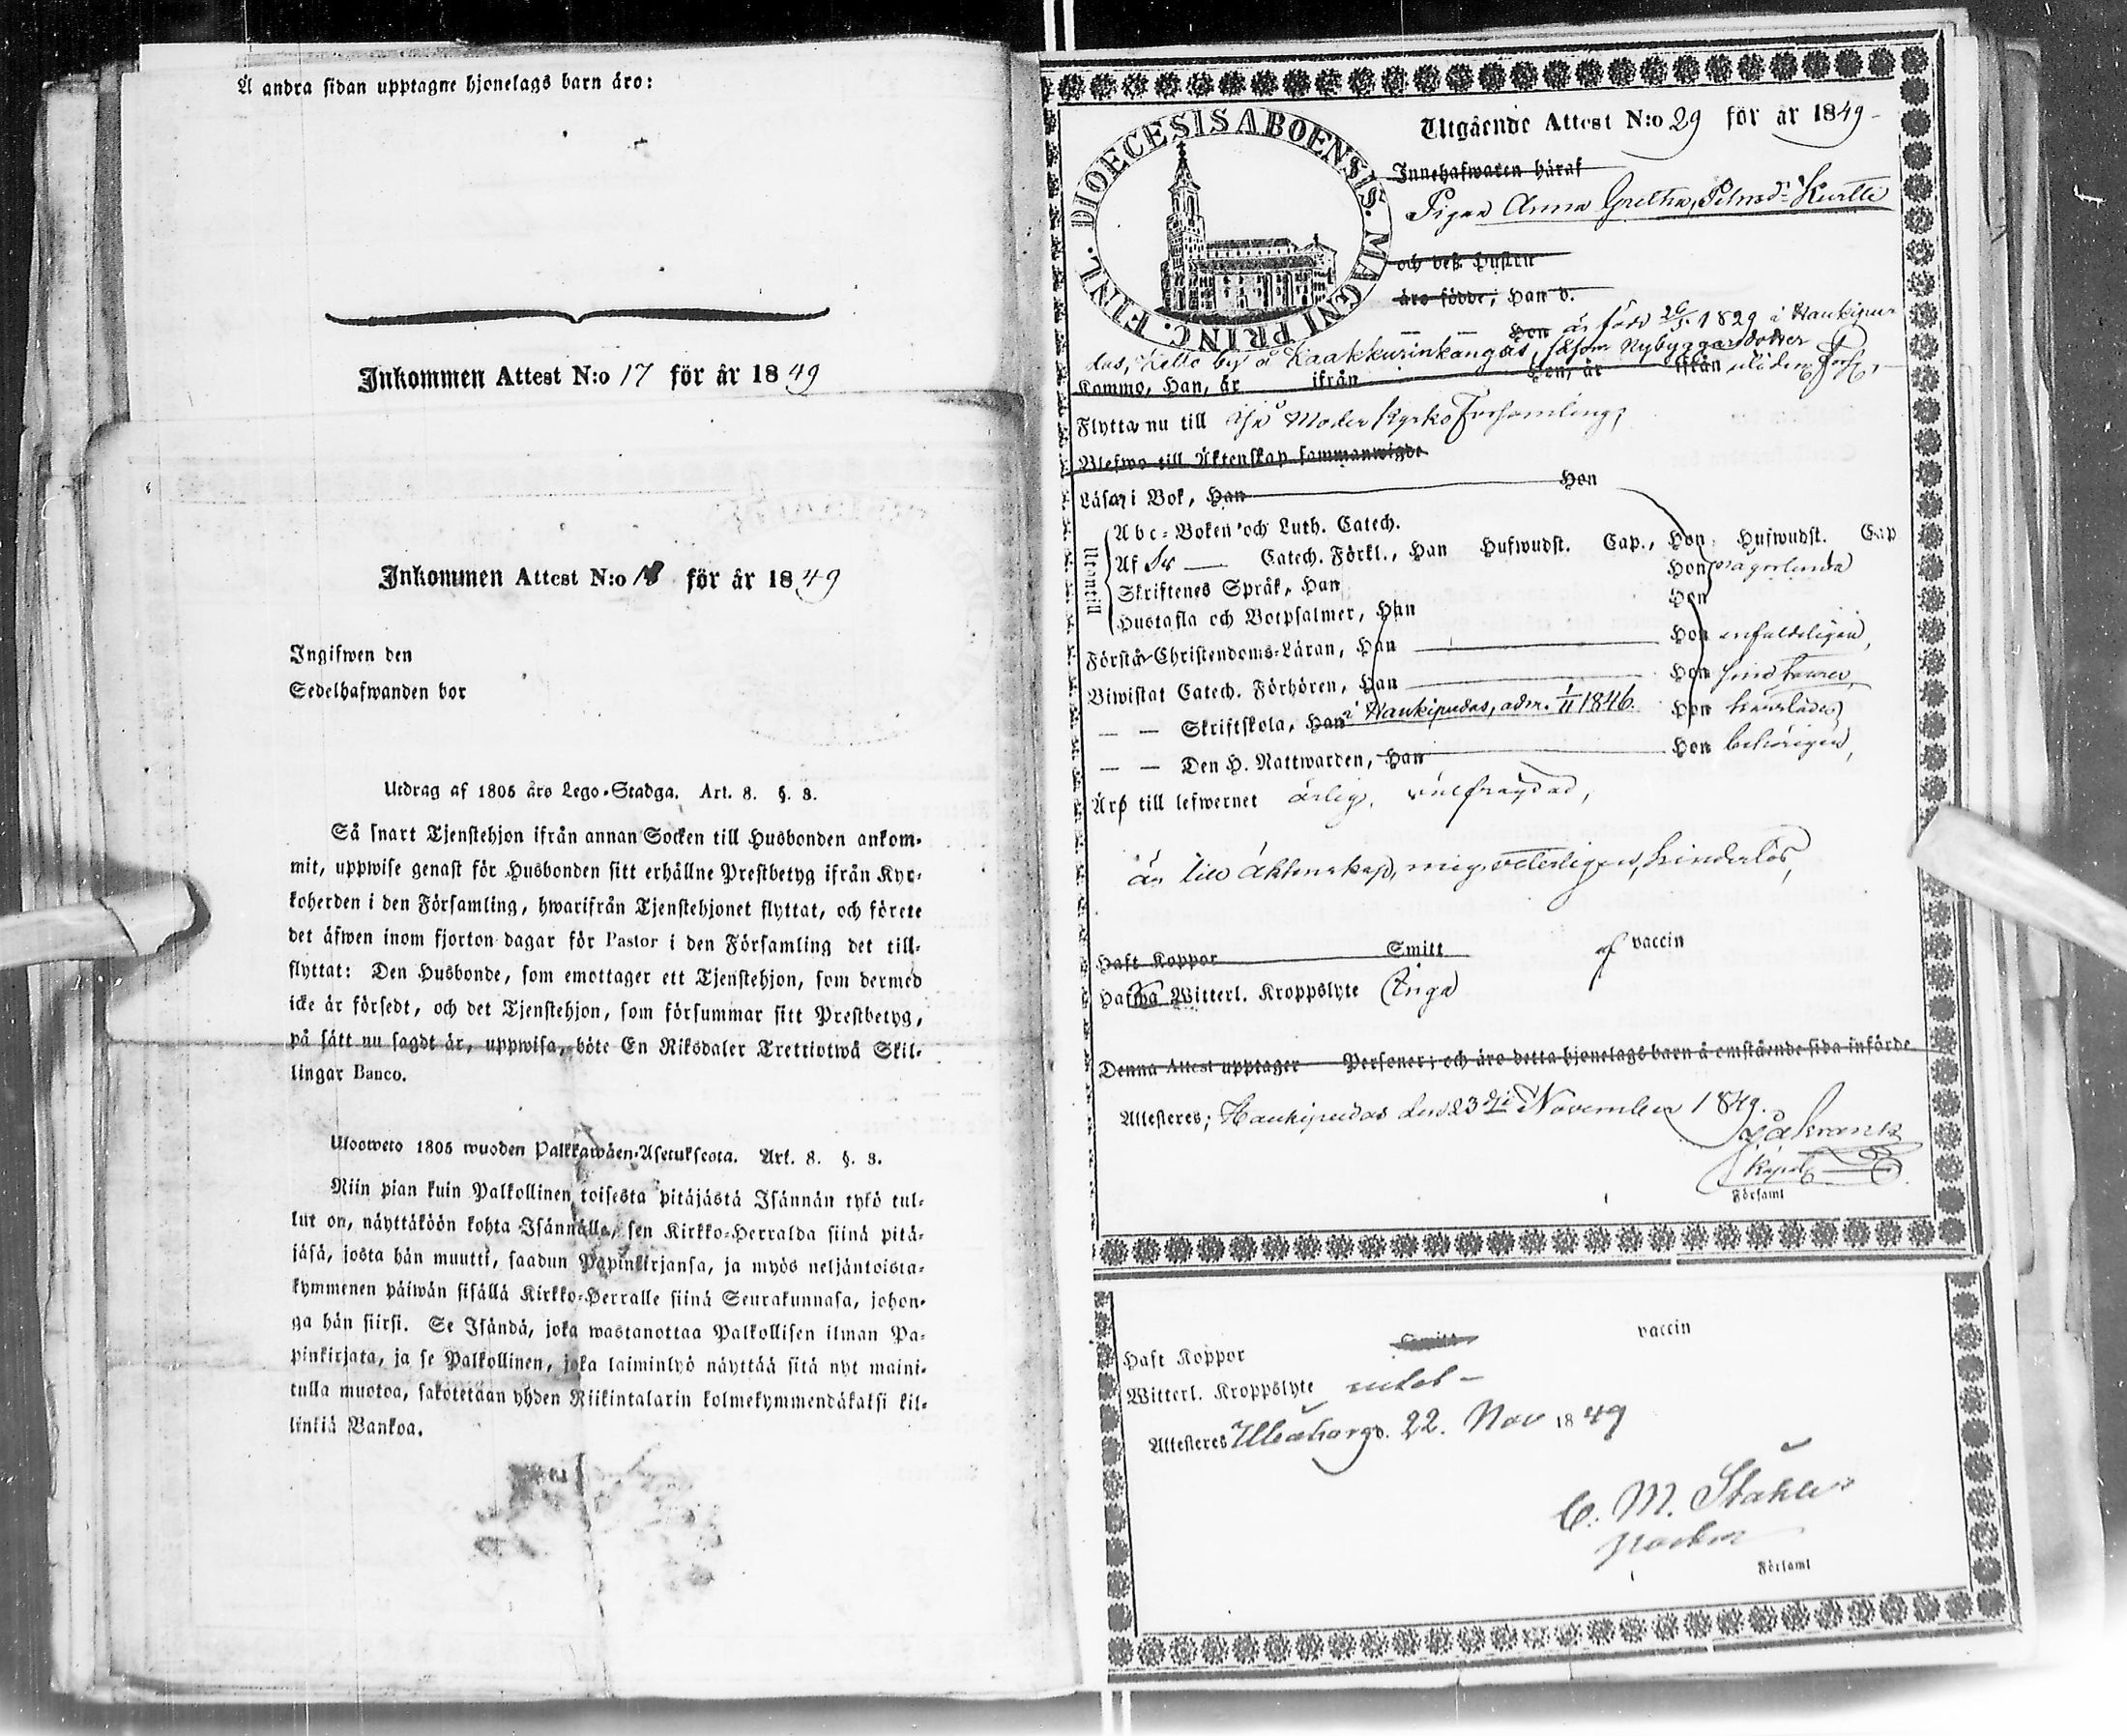 Å andra sidan upptagne hjonelags barn äro:
Inkommen Attest N:o 17 för år 1849
Inkommen Attest N:o för år 1849
Ingifwen den
Sedelhafwanden bor
Utdrag af 1805 års Lego-Stadga. Art. 8. §. 3.
Så snart Tjenstehjon ifrån annan Socken till Husbonden ankom-
mit, uppwise genast för Husbonden sitt erhållne Prestbetyg ifrån Kyr-
koherden i den Församling, hwarifrån Tjenstehjonet flyttat, och förete
det äfwen inom fjorton dagar för Pastor i den Församling det till-
flyttat: Den Husbonde, som emottager ett Tjenstehjon, som dermed
icke är försedt, och det Tjenstehjon, som försummar sitt Prestbetyg,
på sätt nu sagdt är, uppwisa, böte En Riksdaler Trettiotwå Skil-
lingar Banco.
Ulosweto 1805 wuoden Palkkawäen-Asetuksesta. Art. 8. §. 3.
Niin pian kuin Palkollinen toisesta pitäjästä Isännän tykö tul-
lut on, näyttäköön kohta Isännälle, sen Kirkko-Herralda siinä pitä-
jäsä, josta hän muutti, saadun Papinkirjansa, ja myös neljäntoista-
kymmenen päiwän sisällä Kirkko-Herralle siinä Seurakunnasa, johon-
ga hän siirsi. Se Isändä, joka wastanottaa Palkollisen ilman Pa-
pinkirjata, ja se Palkollinen, joka laiminlyö näyttää sitä nyt maini-
tulla muotoa, sakotetaan yhden Riikintalarin kolmekymmendäkaksi kil-
linkiä Bankoa.
DIOECESIS ABOENSIS. MAGNI PRINC. FINL.
Utgående Attest N:o 29 för år 1849
Innehafwaren häraf
Pigan Anna Gretha Petersdr Kurtti
och deß Hustru
äro födde, Han d.
Hon är född 26/5 1829 i Haukipu
das, Kello by å Kaakkurinkangas, såsom Nybyggaredotter
Kommo, Han, år ifrån Hon, år ifrån
Flytta nu till Ijo Moder Kyrko Församling,
Blefwo till Äktenskap sammanwigde
Läser i Bok, Han Hon
Utantill
Abc-Boken och Luth. Catech.
Af Sv Catech. Förkl., Han Hufwudst. Cap., Hon, Hufwudst. Cap
Skriftenes Språk, Han Hon någorlunda
Hustafla och Botpsalmer, Han Hon
Förstår Christendoms-Läran, Han Hon enfaldeligen,
Biwistat Catech. Förhören, Han Hon
— — Skriftskola, Han i Haukipudas, adm. 1/11 1846. Hon
— — Den H. Nattwarden, Han Hon behörigen,
Är till lefwernet ärlig, välfrägdad,
är till äktenskap, mig veterligen, hinderlös,
Haft Koppor Smitt af vaccin
Hafwa Witterl. Kroppslyte Inga
Denna Attest upptager Personer; och äro detta hjonelags barn å omstående sida införde
Attesteres; Haukipudas den 23 November 1849.
Kapel
Församl
Haft Koppor Smitt vaccin
Witterl. Kroppslyte utan
Attesteres Uleåborg d. 22. Nov 1849
C. M. Ståhle
Pastor
Församl